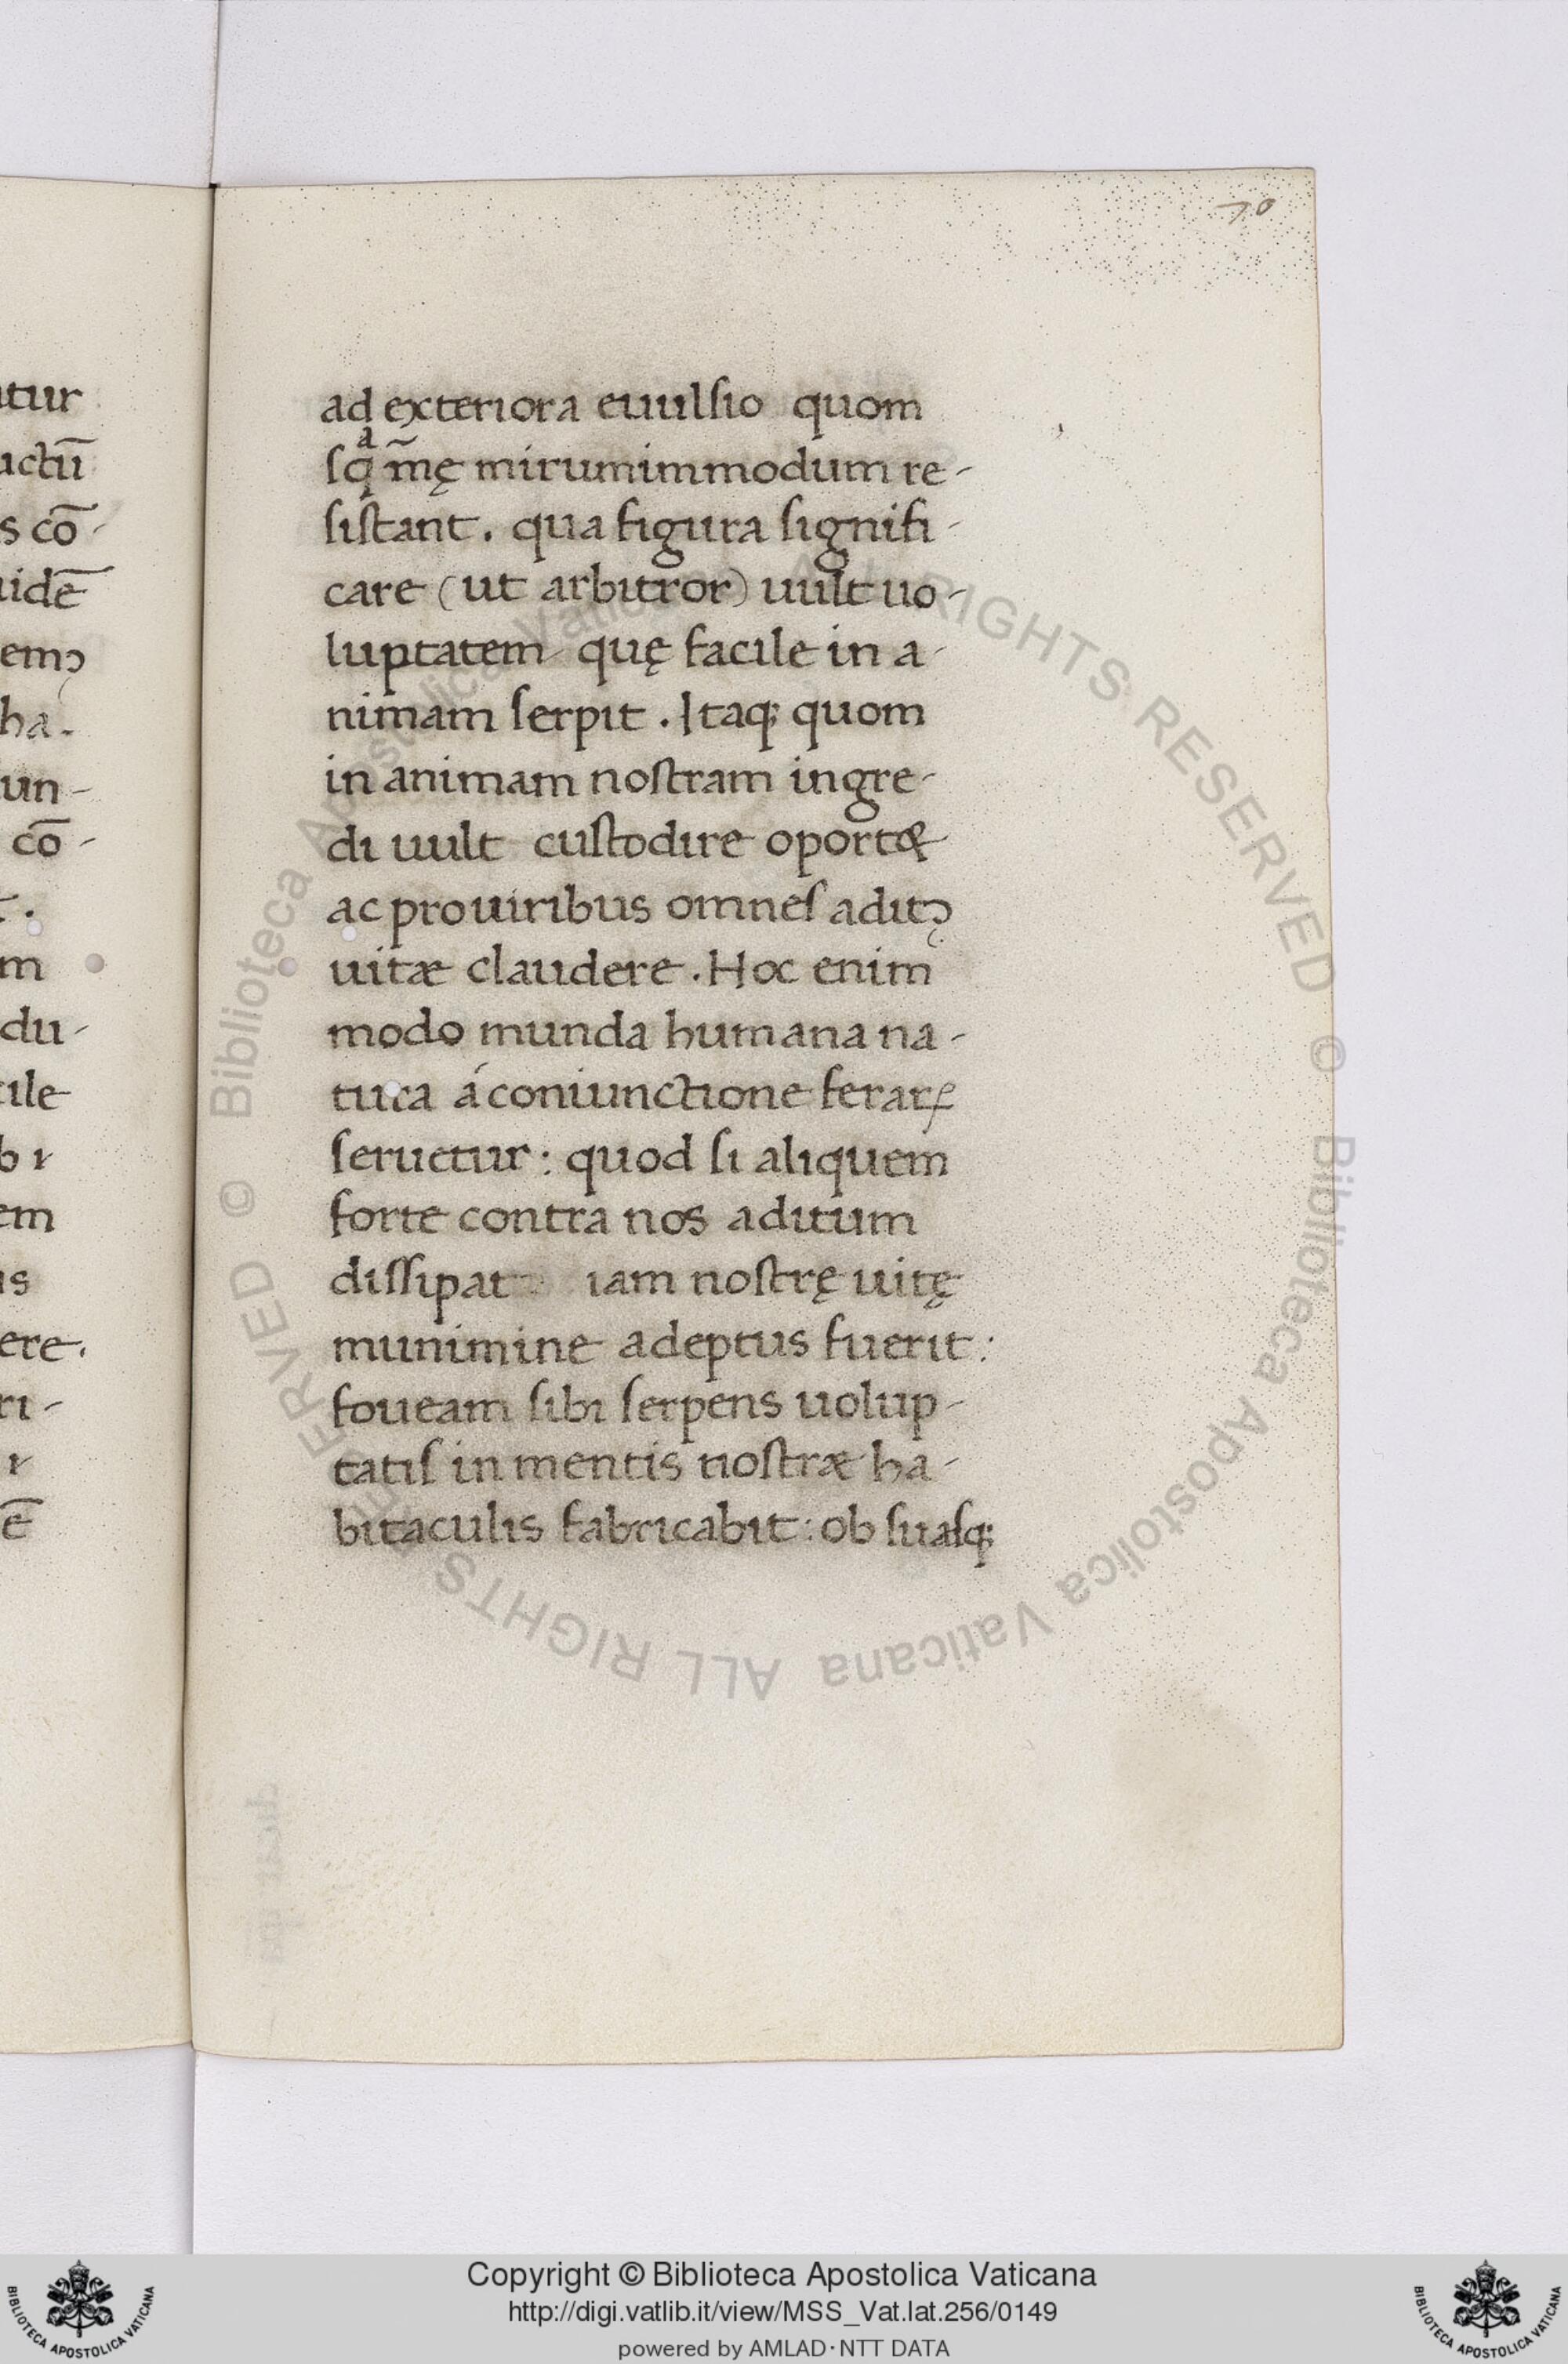 70
atur
uctū
s cō-
uidē
emꝯ
ha.
un-
cō-
t.
m
du-
cile
b r
em
is
ere.
ri-
r
ē
ad exteriora euulsio quom
sqᵃm̃ę mirumimmodum re-
sistant. qua figura signifi-
care (ut arbitror) uult uo-
luptatem quę facile in a-
nimam serpit. Itaqꝫ quom
in animam nostram ingre-
di uult custodire oport&
ac prouiribus omnes aditꝯ
uitæ claudere. Hoc enim
modo munda humana na-
tura á coniunctione ferarꝝ
seruetur: quod si aliquem
forte contra nos aditum
dissipat iam nostrę uitę
munimine adeptus fuerit:
foueam sibi serpens uolup-
tatis in mentis nostræ ha-
bitaculis fabricabit: ob suasqꝫ
© Biblioteca Apostolica Vaticana ALL RIGHTS RESERVED © Biblioteca Apostolica Vaticana ALL RIGHTS RESERVED
Copyright © Biblioteca Apostolica Vaticana
http://digi.vatlib.it/view/MSS_Vat.lat.256/0149
powered by AMLAD·NTT DATA
BIBLIOTECA APOSTOLICA VATICANA
BIBLIOTECA APOSTOLICA VATICANA